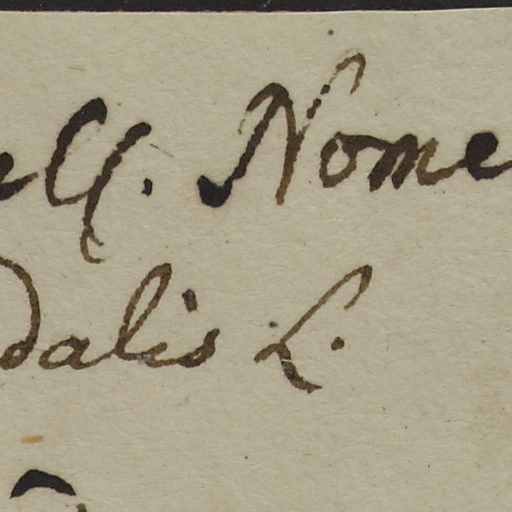 ell. Nome
dalis L.